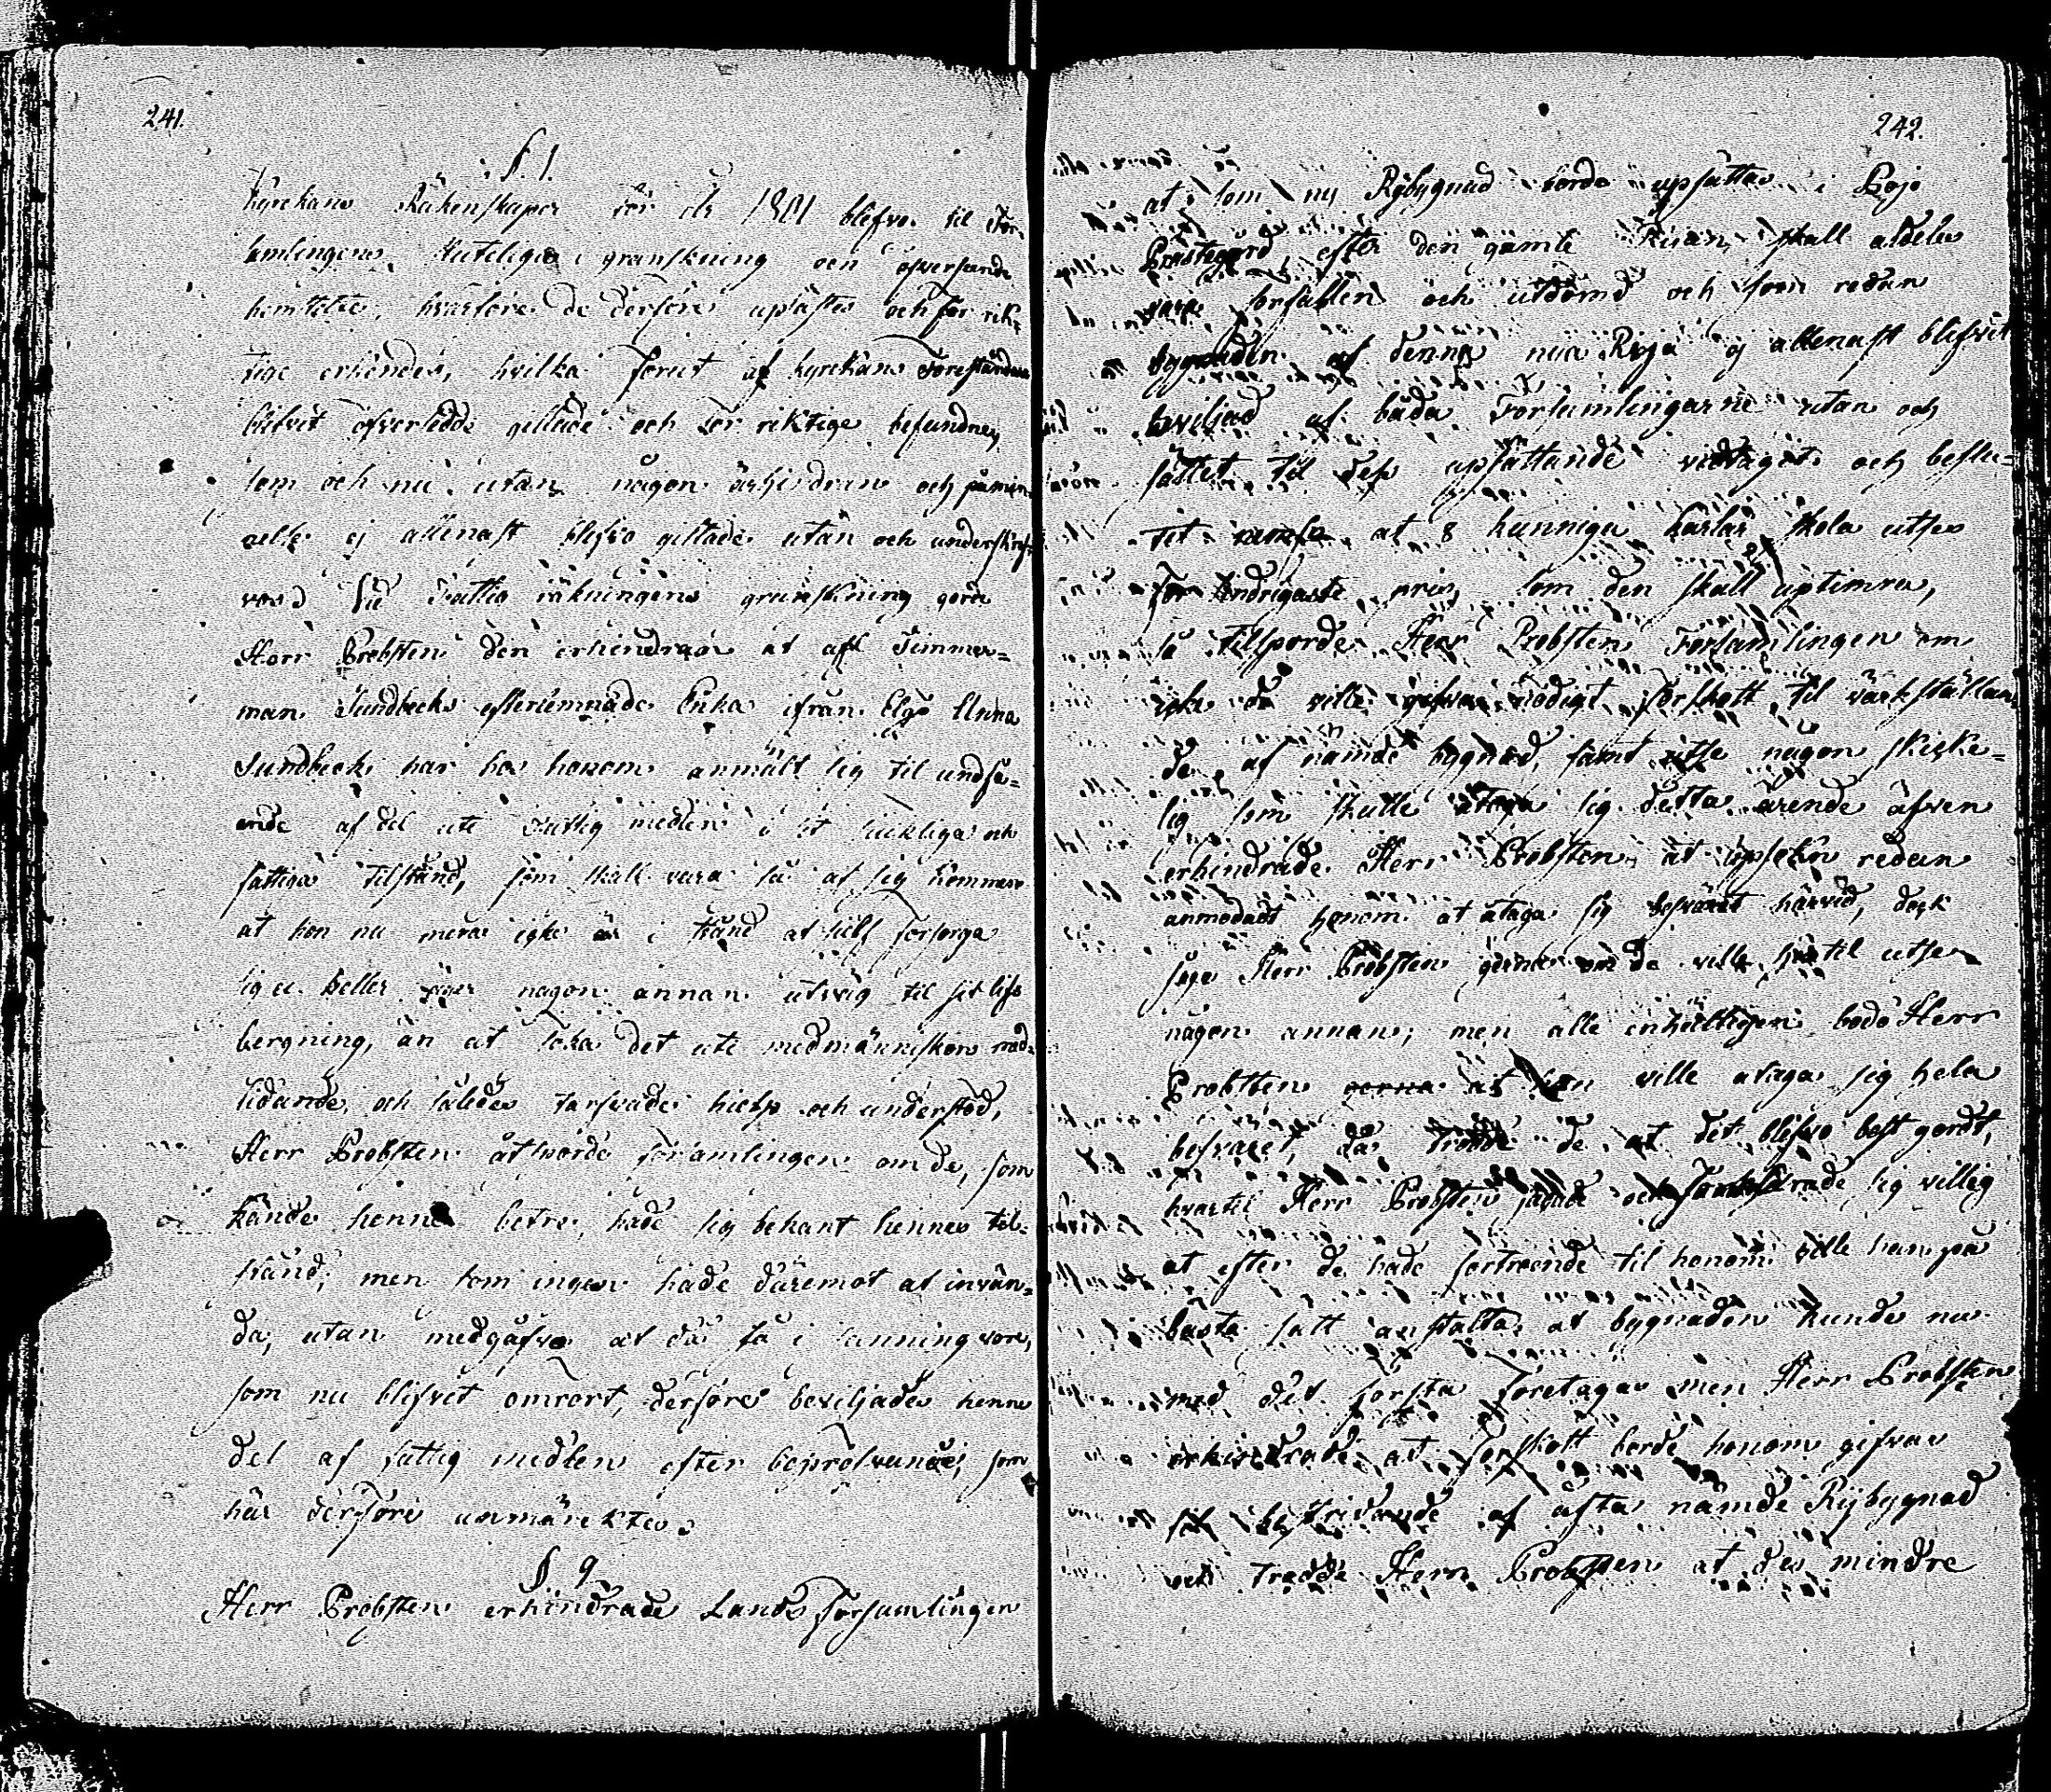 241.
§. 1.
Kyrckans Räkenskaper för år 1801 blefvo til För-
samlingens slutelige granskning och öfverseende
hemtelte, hvarföre de derföre uplästes och för rik-
tige erkändes, hvilka förut af kyrckans Föreståndare
blifvit öfversedde gillade och för riktige befundne,
som och nu utan någon erhindran och påmin-
nelse ej allenast blefvo gillade utan och underskref-
vos. Vid Fattig räkningens granskning gorde
Herr Probsten den erhindran at afl Timmer-
man Sundbecks efterlemnade Enka ifrån Elgö Anna
Sundbeck har hos honom anmält sig til undfå-
ende af del uti Fattig medlen i sit siukliga och
fattiga tilstånd, som skall vara så at sig hemmase
at hon nu mera icke är i stånd at sielf försörga
sig ei heller äger någon annan utväg til sit lifs
bergning, än at söka det uti medmänniskors med-
lidande, och således torfvade hielp och understöd,
Herr Probsten åtsporde Församlingen om de, som
kände henne betre, hade sig bekant hennes til-
stånd; men som ingen hade däremot at invän-
da, utan medgåfvo at då så i sanning vore,
som nu blifvit omrört, derföre beviljades henne
del af fattig medlen efter bepröfvande, som
här derföre anmärcktes.
§ 9
Herr Probsten erhindrade Lands Församlingen
242.
at som ny Rijbygnad borde upsättas i Bojo
Prästegård, efter den gamle Rijan skall aldeles
vara förfallen och utdömd och som redan
bygnaden af denna nya Rija ej allenast blifvit
beviljad af båda Församlingarne utan och
sättet til dess upsättande vidtagit och beslu-
tit at 8 kunniga karlar skola utses
för lindrigaste pris, som den skall uptimra,
så tillsporde Herr Probsten Församlingen om
icke de ville gifva nödigt förskott til värkställan-
de af nämde bygnad, samt utse någon skicke-
lig som skulle åtaga sig detta ärende äfven
erhindrade Herr Probsten at upsedn redan
anmodadt honom at åtaga sig besväret härvid, dock
såge Herr Probsten gerna om de ville härtil utse
någon annan; men alle enhälligen bodo Herr
Probsten gerna at han ville åtaga sig hela
besväret, då trodde de at det blefve best gordt,
hvartil Herr Probsten sade och förklarade sig villig
at efter de hade förtroende til honom ville han på
bästa sätt anstalta at bygnaden kunde nu
med det första företagas men Herr Probsten
erhindrade at förskott borde honom gifvas
til bestridande af ofta nämde Rijbygnad
och trodde Herr Probsten at des mindre